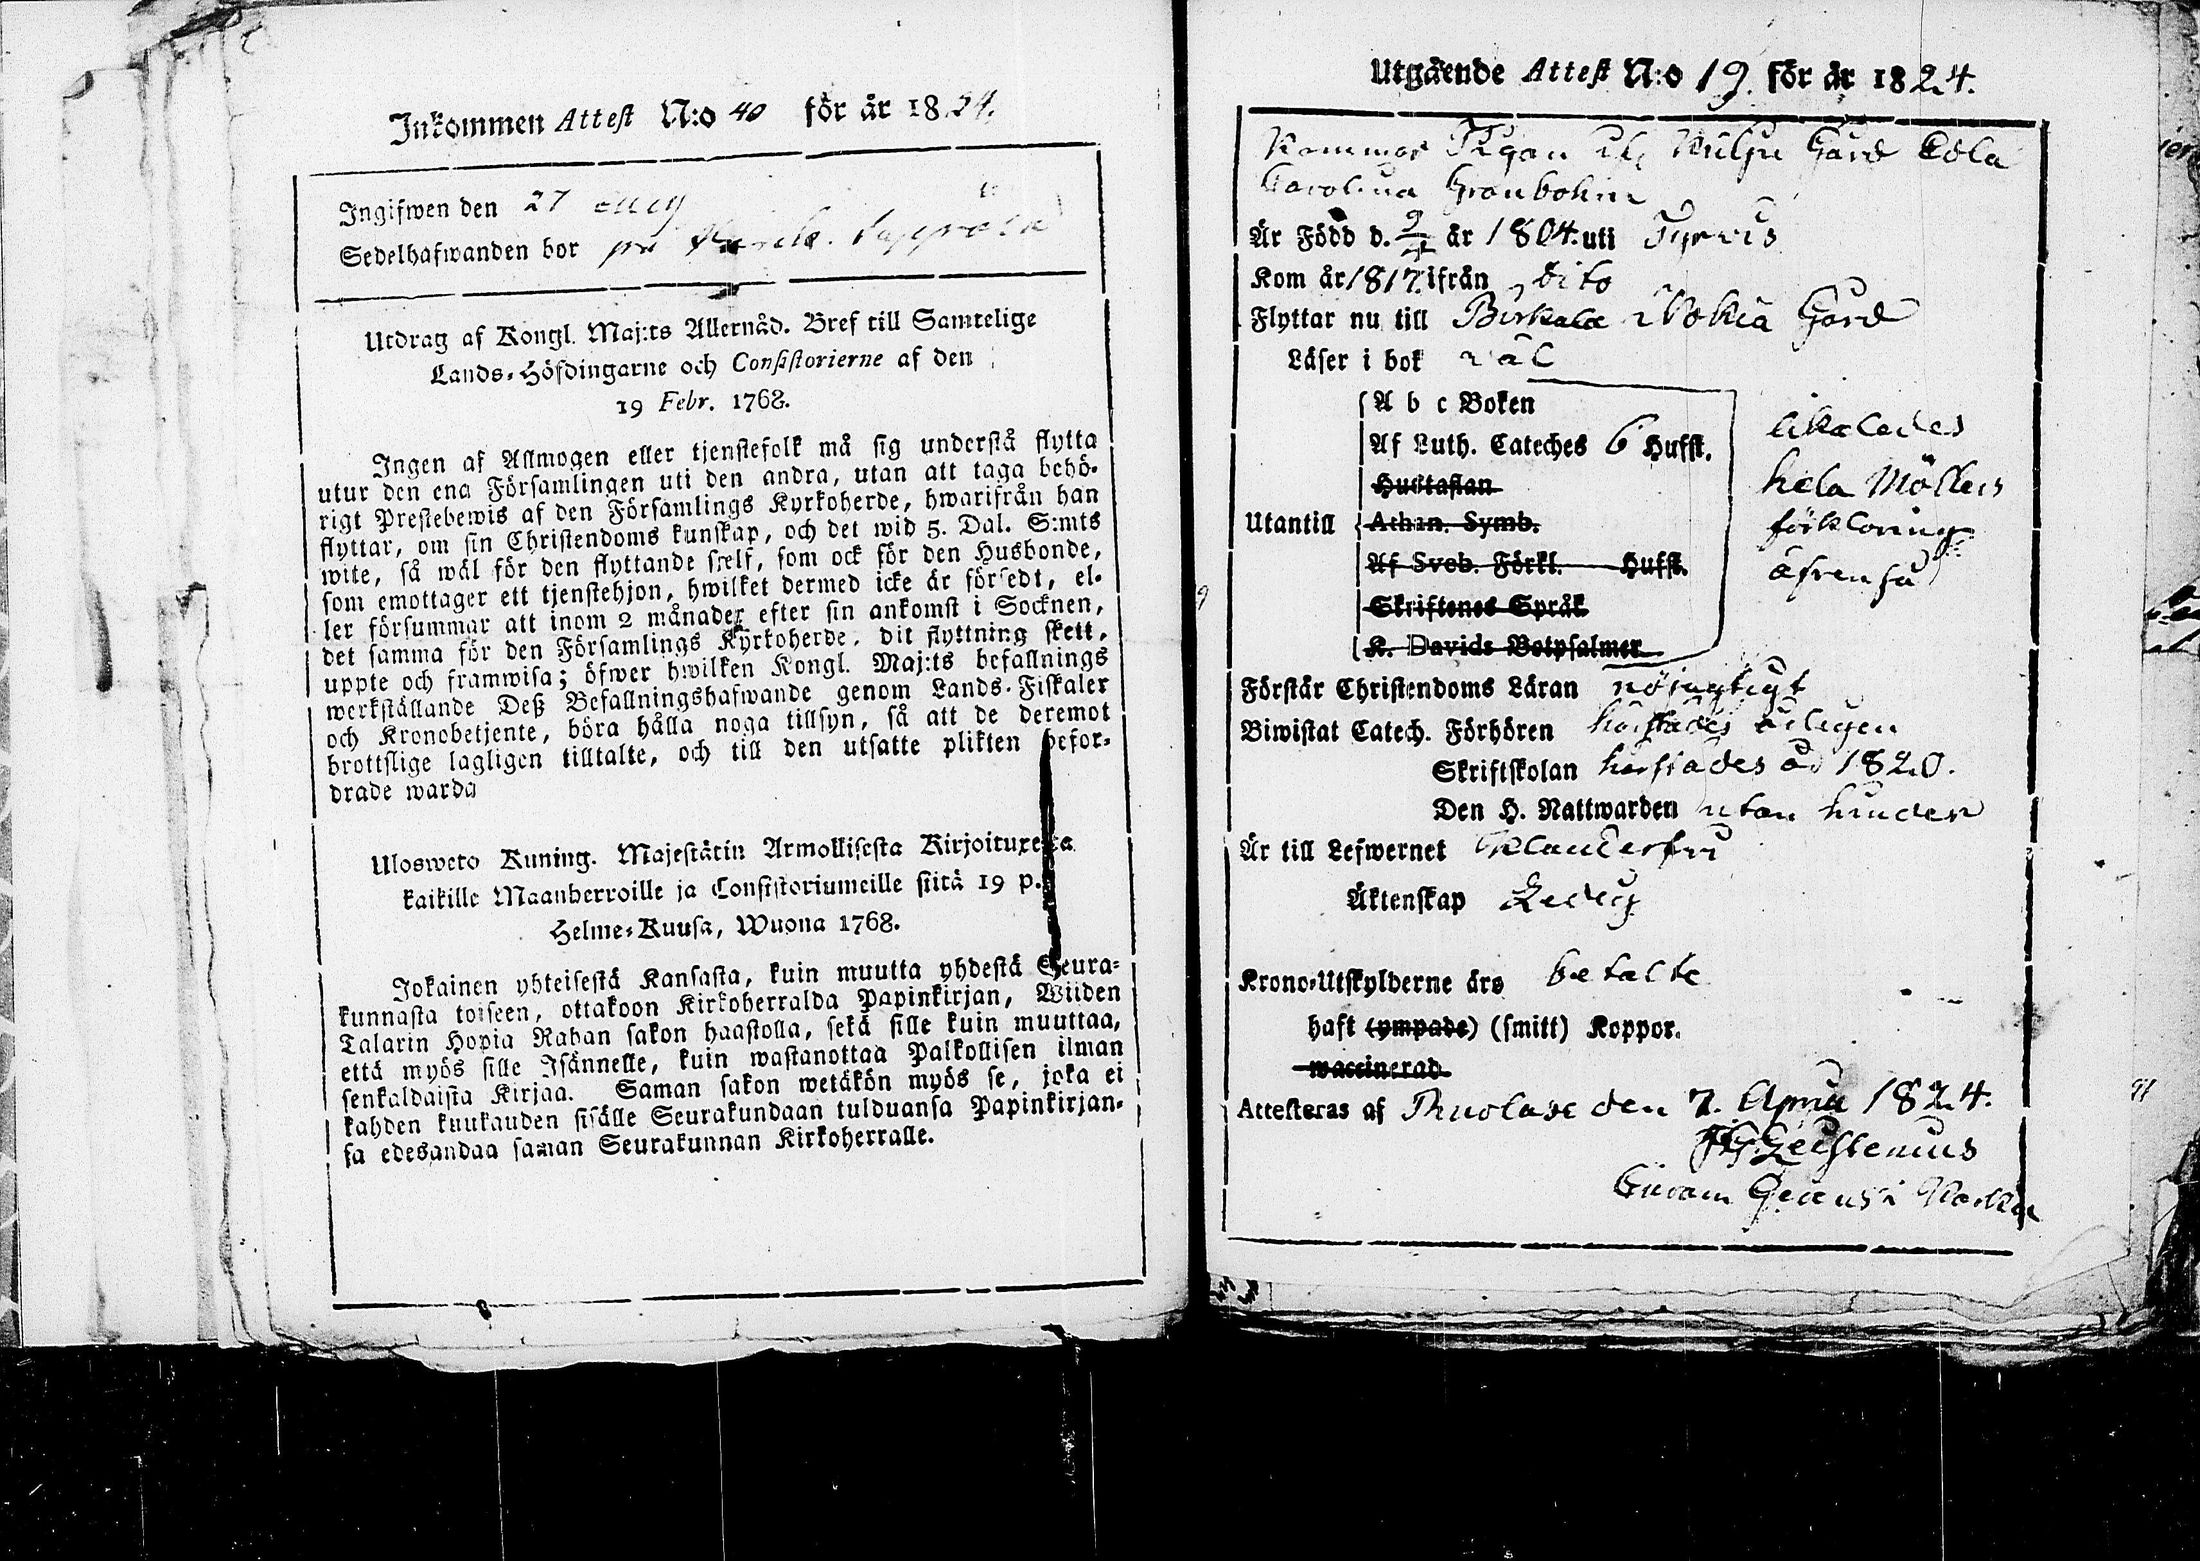 Inkommen Attest N:o 40 för år 1824.
Ingifwen den 27
Sedelhafwanden bor på
Utdrag af Kongl. Maj:ts Allernåd. Bref till Samtelige
Lands-Höfdingarne och Consistorierne af den
19 Febr. 1768.
Ingen af Allmogen eller tjenstefolk må sig understå flytta
utur den ena Församlingen uti den andra, utan att taga behö-
rigt Prestebewis af den Församlings Kyrkoherde, hwarifrån han
flyttar, om sin Christendoms kunskap, och det wid 5. Dal. S:mts
wite, så wäl för den flyttande sjelf, som ock för den Husbonde,
som emottager ett tjenstehjon, hwilket dermed icke är försedt, el-
ler försummar att inom 2 månader efter sin ankomst i Socknen,
det samma för den Församlings Kyrkoherde, dit flyttning skett,
uppte och framwisa; öfwer hwilken Kongl. Maj:ts befallnings
werkställande Deß Befallningshafwande genom Lands-Fiskaler
och Kronobetjente, böra hålla noga tillsyn, så att de deremot
brottslige lagligen tilltalte, och till den utsatte plikten befor-
drade warda
Ulosweto Kuning. Majestätin Armollisesta Kirjoituxesta
kaikille Maanherroille ja Consistoriumeille siitä 19 p.
Helme-Kuusa, Wuona 1768.
Jokainen yhteisestä Kansasta, kuin muutta yhdestä Seura-
kunnasta toiseen, ottakoon Kirkoherralda Papinkirjan, Wiiden
Talarin Hopia Rahan sakon haastolla, sekä sille kuin muuttaa,
että myös sille Isännelle, kuin wastanottaa Palkollisen ilman
senkaldaista Kirjaa. Saman sakon wetäkön myös se, joka ei
kahden kuukauden sisälle Seurakundaan tulduansa Papinkirjan-
sa edesandaa saman Seurakunnan Kirkoherralle.
Utgående Attest N:o 19. för år 1824.
Kammar Pigan Gård Edla
Carolina Granbohm
Är Född d. 9 år 1804. uti Tyrvis
Kom år 1817. ifrån dito
Flyttar nu till Birkala Nokia Gård
Läser i bok väl
A b c Boken
Af Luth. Cateches 6 Hufst.
Hustaflan
Utantill Athan. Symb.
Af Sveb. Förkl. Hufst.
Skriftenes Språk
K. Davids Botpsalmer
likaledes
hela Möllers
förklaring
äfven så
Förstår Christendoms Läran nöjagtigt
Biwistat Catech. Förhören härstädes årligen
Skriftskolan härstädes år 1820.
Den H. Nattwarden utan hinder
Är till Lefwernet oklanderfri
Äktenskap Ledig
Krono-Utskylderne äro betalte
haft (ympade) (smitt) Koppor.
waccinerad
Attesteras af Thuolax den 7. April 1824.